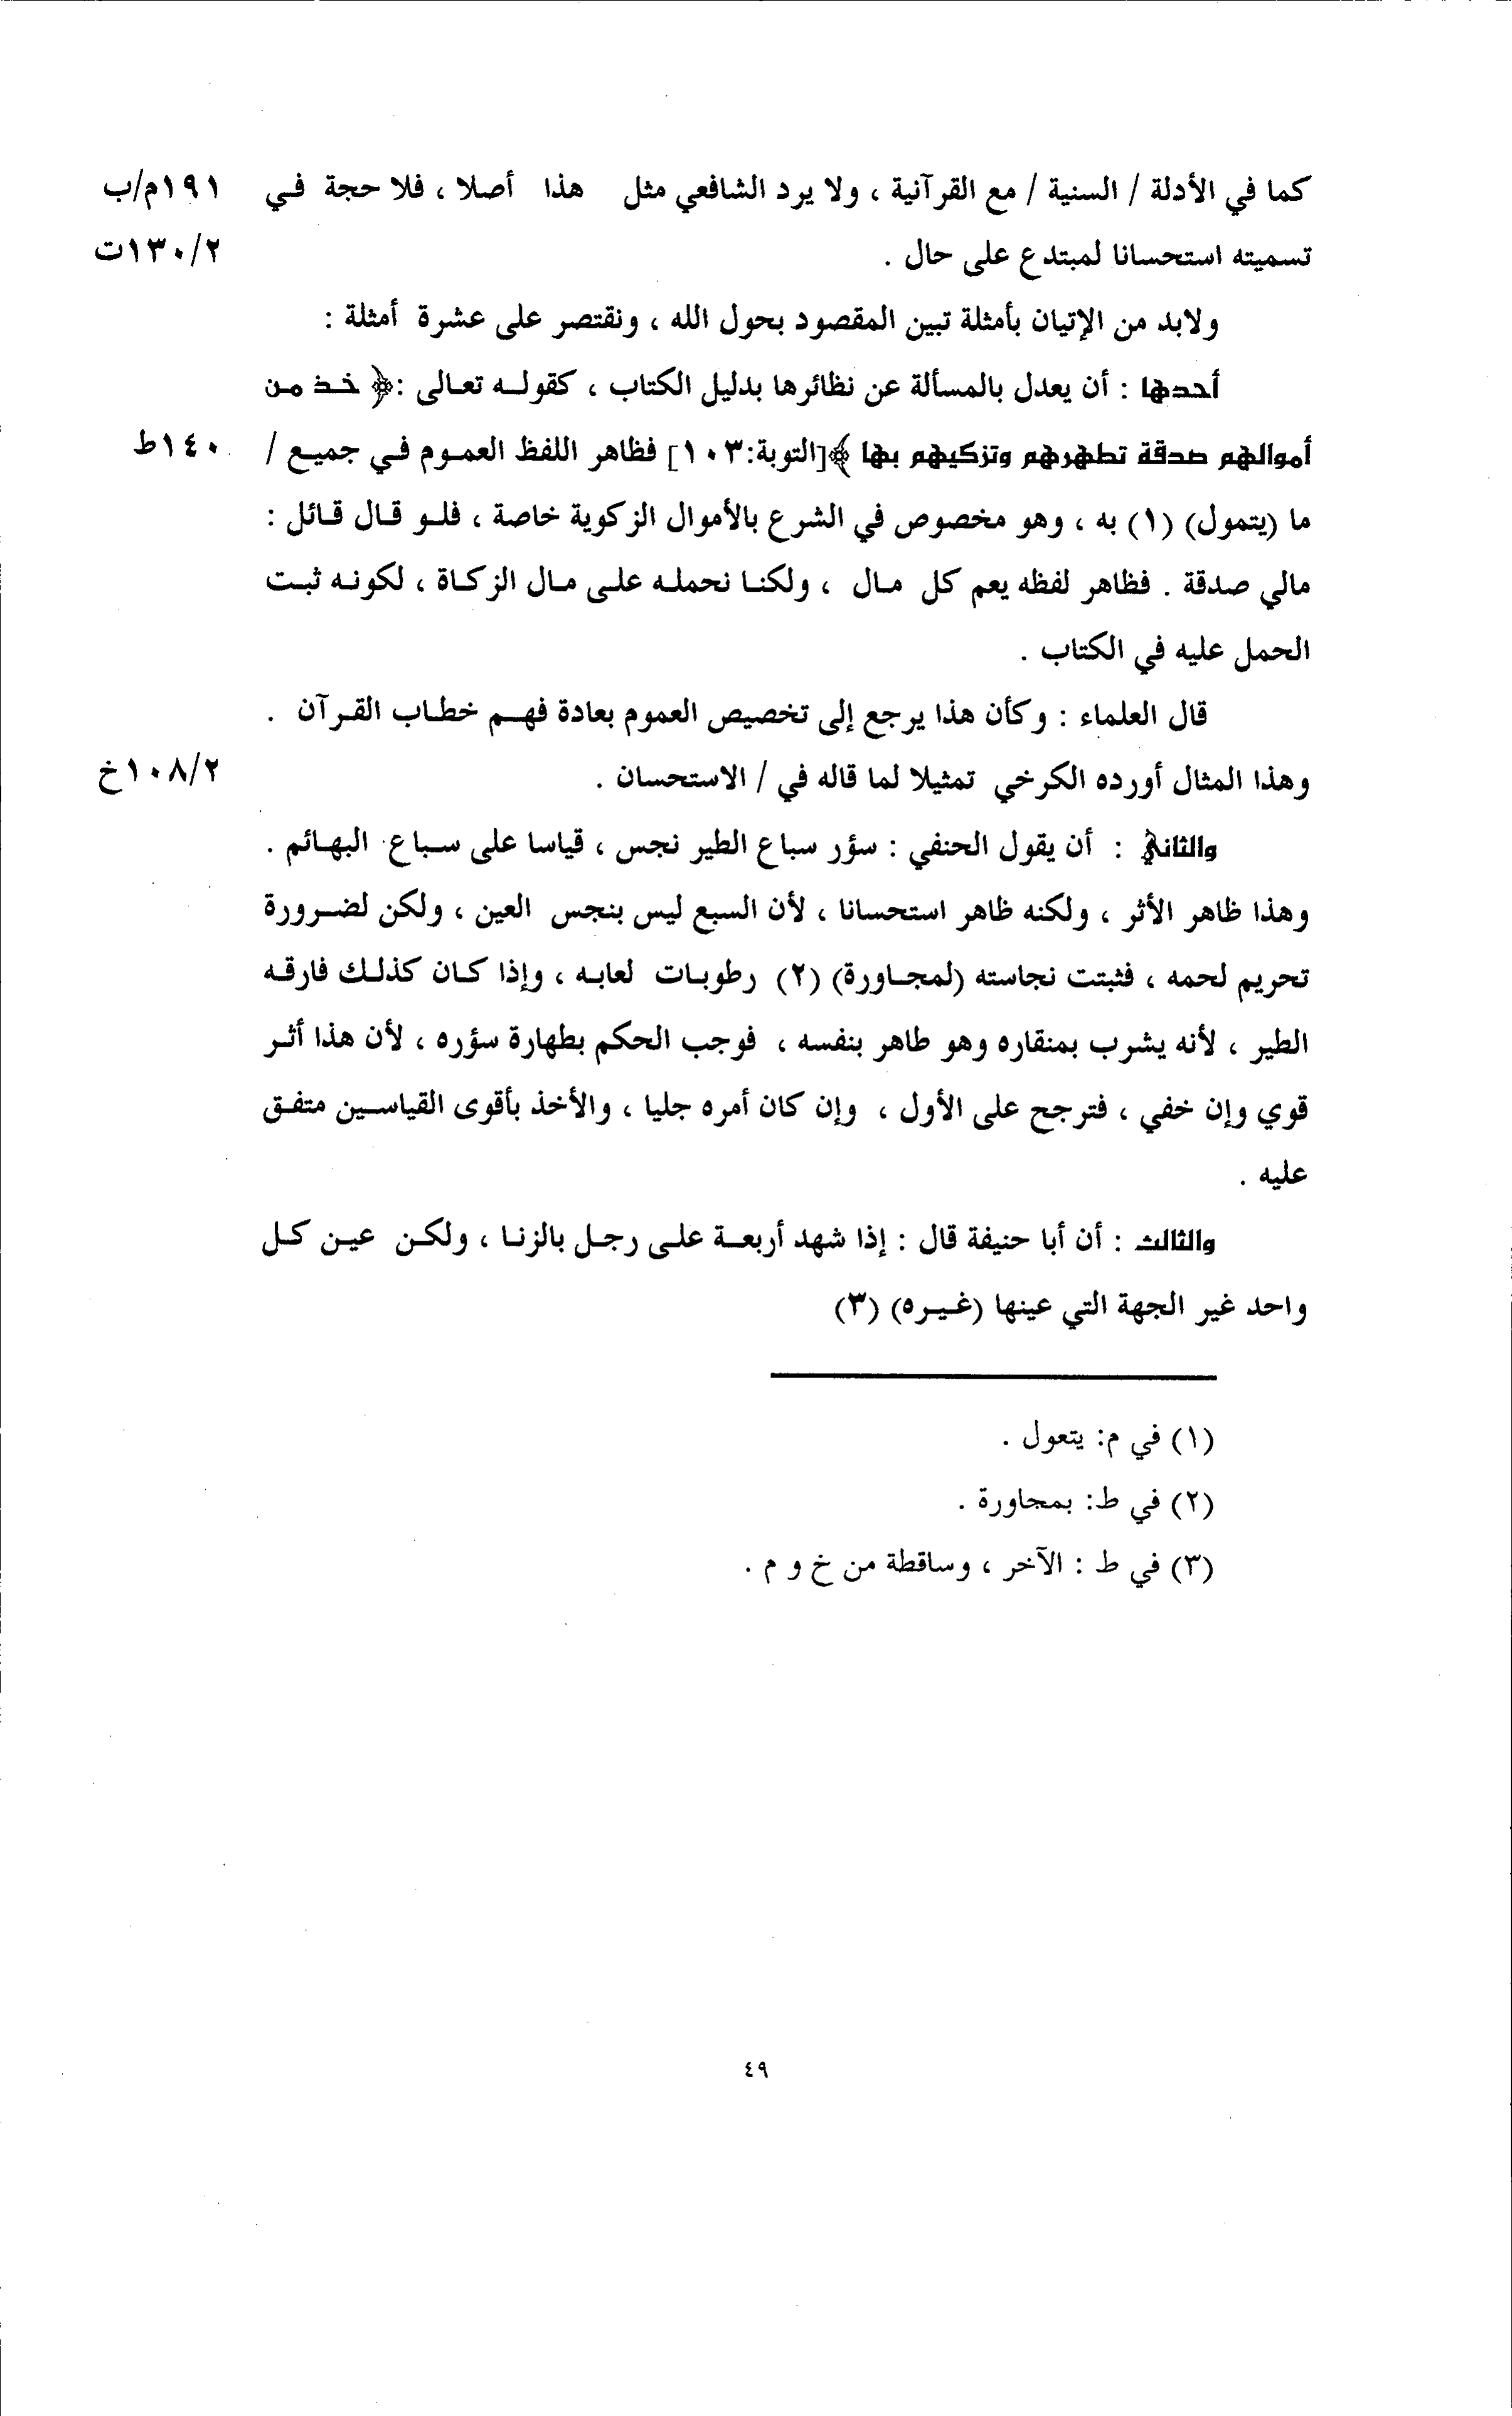 كما في الأدلة / السنية / مع القرآنية ، ولا يرد الشافعي مثل هذا أصلا ، فلا حجة في ١٩١م/ب
تسميته استحسانا لمبتدع على حال . ١٣٠/٢ت
ولابد من الإتيان بأمثلة تبين المقصود بحول الله ، ونقتصر على عشرة أمثلة :
أحدها : أن يعدل بالمسألة عن نظائرها بدليل الكتاب ، كقوله تعالى :﴿ خذ من
أموالهم صدقة تطهرهم وتزكيهم بها ﴾[التوبة:١٠٣] فظاهر اللفظ العموم في جميع / ١٤٠ط
ما (يتمول) (١) به ، وهو مخصوص في الشرع بالأموال الزكوية خاصة ، فلو قال قائل :
مالي صدقة . فظاهر لفظه يعم كل مال ، ولكنا نحمله على مال الزكاة ، لكونه ثبت
الحمل عليه في الكتاب .
قال العلماء : وكأن هذا يرجع إلى تخصيص العموم بعادة فهم خطاب القرآن .
وهذا المثال أورده الكرخي تمثيلا لما قاله في / الاستحسان . ١٠٨/٢خ
والثاني : أن يقول الحنفي : سؤر سباع الطير نجس ، قياسا على سباع البهائم .
وهذا ظاهر الأثر ، ولكنه ظاهر استحسانا ، لأن السبع ليس بنجس العين ، ولكن لضرورة
تحريم لحمه ، فثبتت نجاسته (لمجاورة) (٢) رطوبات لعابه ، وإذا كان كذلك فارقه
الطير ، لأنه يشرب بمنقاره وهو طاهر بنفسه ، فوجب الحكم بطهارة سؤره ، لأن هذا أثر
قوي وإن خفي ، فترجح على الأول ، وإن كان أمره جليا ، والأخذ بأقوى القياسين متفق
عليه .
والثالث : أن أبا حنيفة قال : إذا شهد أربعة على رجل بالزنا ، ولكن عين كل
واحد غير الجهة التي عينها (غيره) (٣)
(١) في م: يتعول .
(٢) في ط: بمجاورة .
(٣) في ط : الآخر ، وساقطة من خ و م .
٤٩